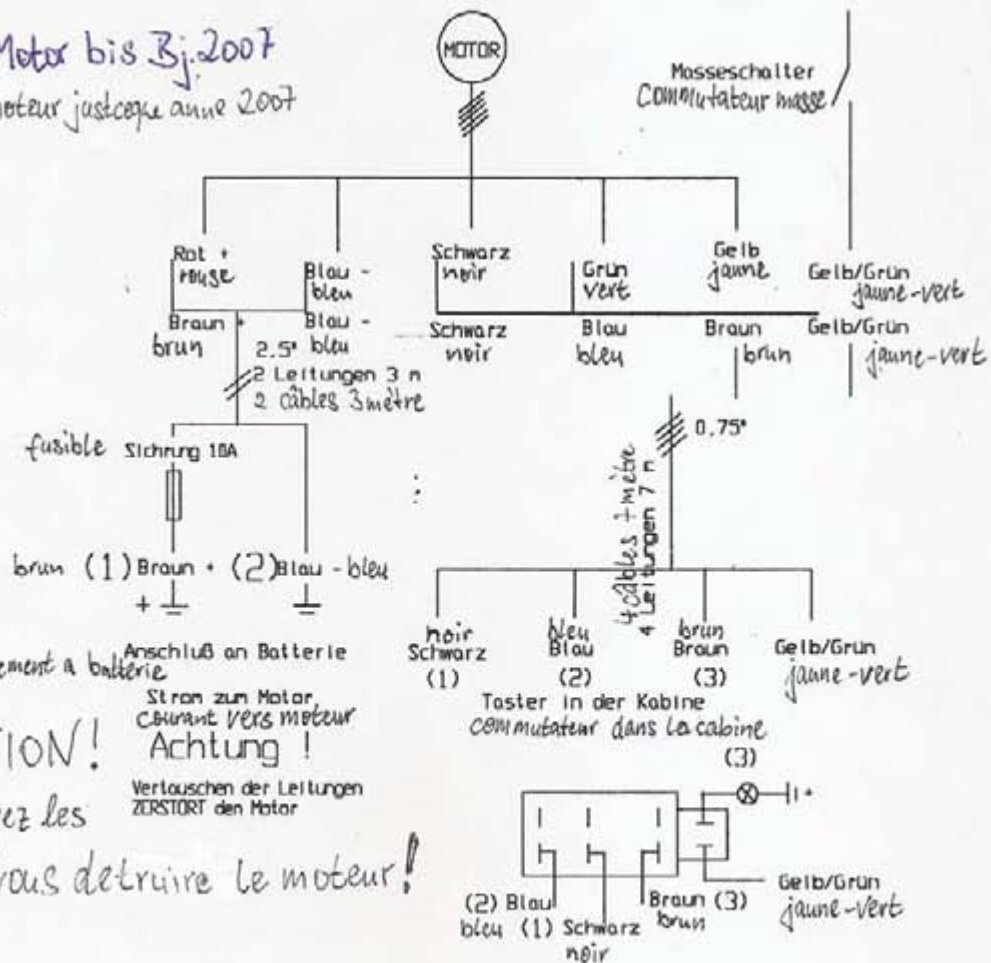 Motor bis Bj.2007
moteur justceque anne 2007
MOTOR
Masseschalter
Commutateur masse
Rot +
rouge
Blau -
bleu
Schwarz
noir
Grün
vert
Gelb
jaune
Gelb/Grün
jaune-vert
Braun +
brun
Blau -
bleu
Schwarz
noir
Blau
bleu
Braun
brun
Gelb/Grün
jaune-vert
2.5"
2 Leitungen 3 m
2 câbles 3 mètre
0.75"
4 câbles 7 mètre
4 Leitungen 7 m
fusible Sichrung 10A
brun (1) Braun + (2) Blau - bleu
+
Anschluß an Batterie
ement a batterie
Strom zum Motor
Courant vers moteur
TION! Achtung !
Vertauschen der Leitungen
ZERSTÖRT den Motor
ez les
vous detruire le moteur!
noir
Schwarz
(1)
bleu
Blau
(2)
brun
Braun
(3)
Gelb/Grün
jaune-vert
Taster in der Kabine
commutateur dans la cabine
(3)
+
(2) Blau
bleu
(1) Schwarz
noir
Braun (3)
brun
Gelb/Grün
jaune-vert